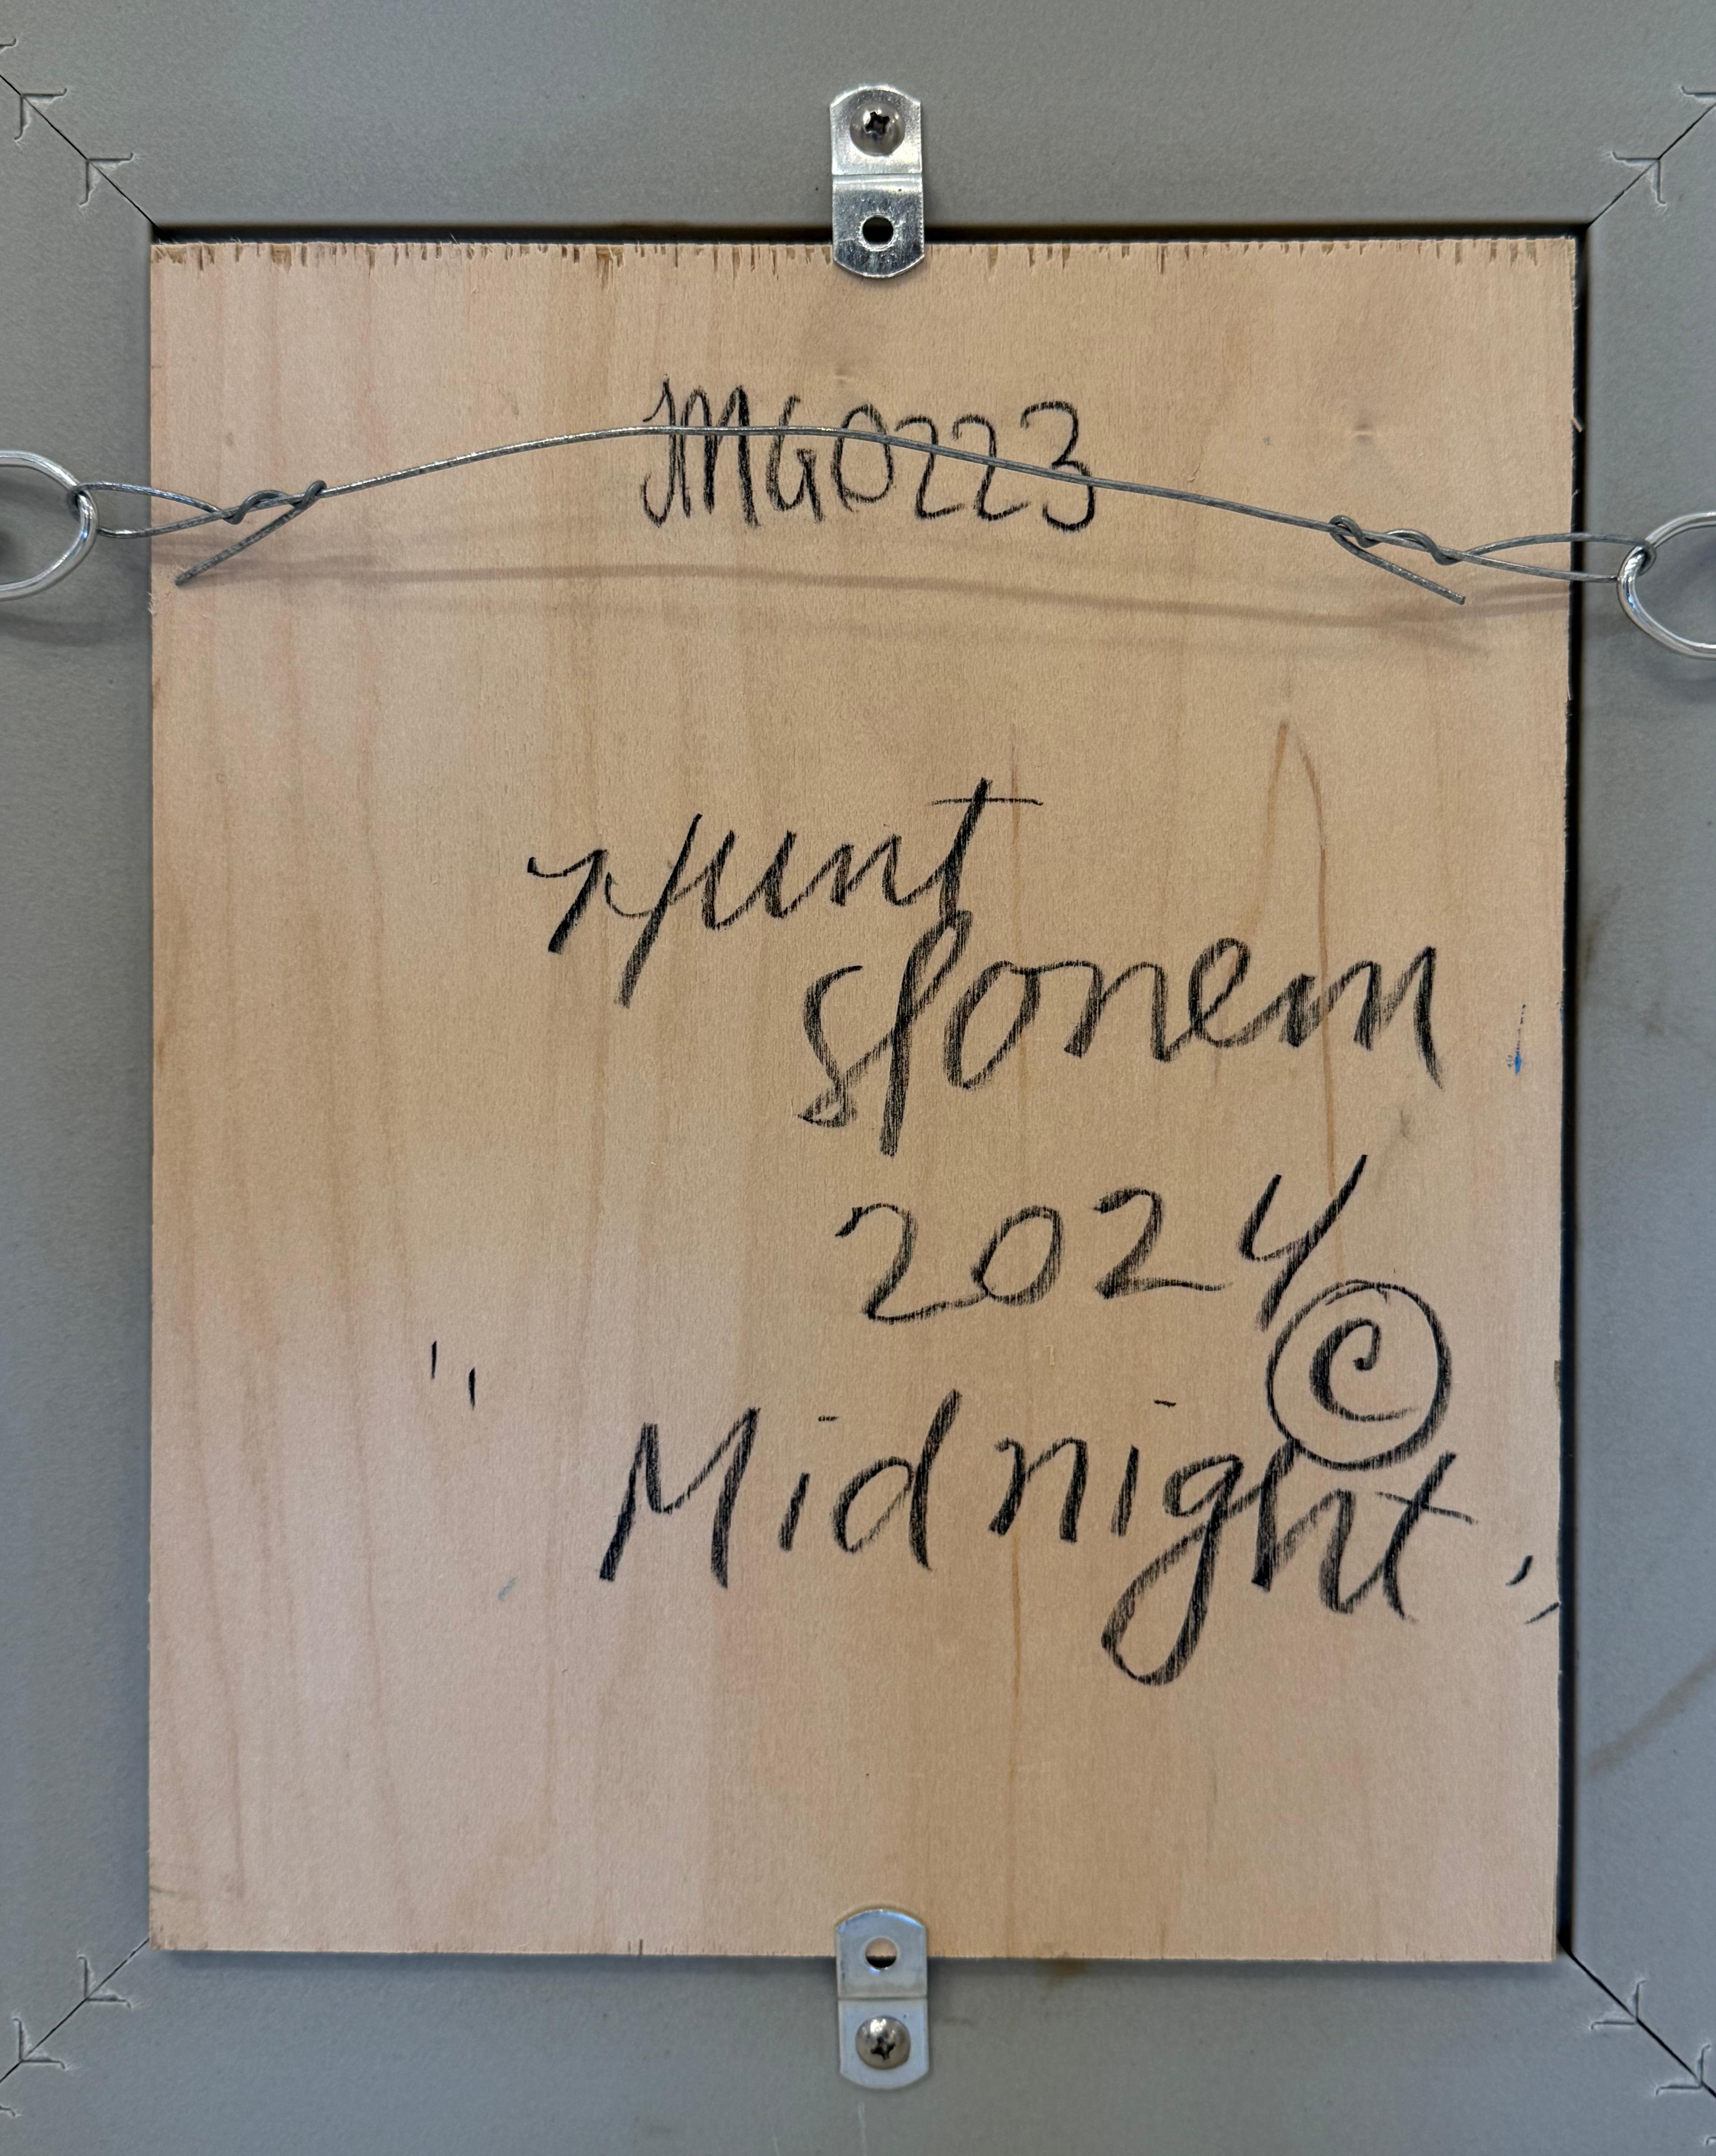 JMG0223
Hunt
Slonem
2024
©
"Midnight"